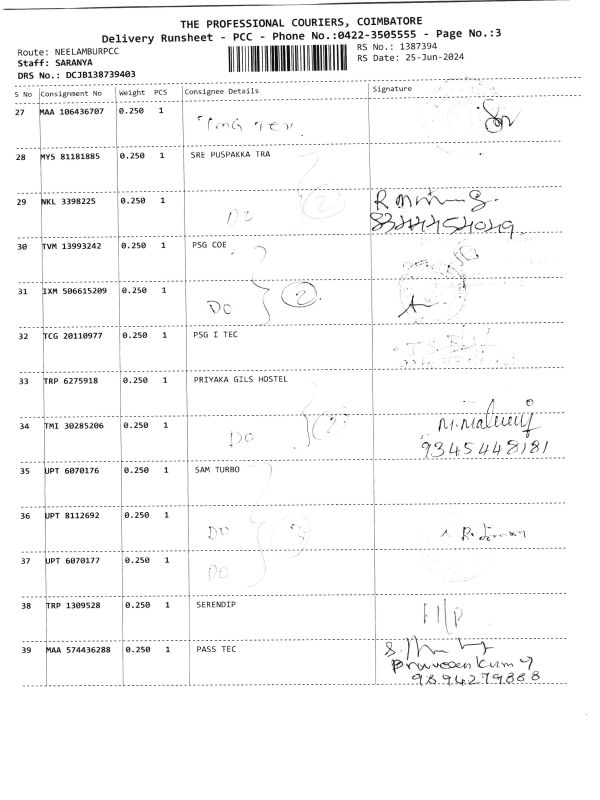 THE PROFESSIONAL COURIERS, COIMBATORE
Delivery Runsheet - PCC - Phone No.:0422-3505555 - Page No.:3
Route: NEELAMBURPCC RS No.: 1387394
Staff: SARANYA RS Date: 25-Jun-2024
DRS No.: DCJB138739403
S No Consignment No Weight PCS Consignee Details Signature
27 MAA 106436707 0.250 1
28 MYS 81181885 0.250 1 SRE PUSPAKKA TRA
29 NKL 3398225 0.250 1
DO 2
30 TVM 13993242 0.250 1 PSG COE
31 IXM 506615209 0.250 1
DO 2
32 TCG 20110977 0.250 1 PSG I TEC
33 TRP 6275918 0.250 1 PRIYAKA GILS HOSTEL
34 TMI 30285206 0.250 1
DO 2
9345448181
35 UPT 6070176 0.250 1 SAM TURBO
36 UPT 8112692 0.250 1
DO 3
37 UPT 6070177 0.250 1
DO
38 TRP 1309528 0.250 1 SERENDIP
39 MAA 574436288 0.250 1 PASS TEC
9894279888